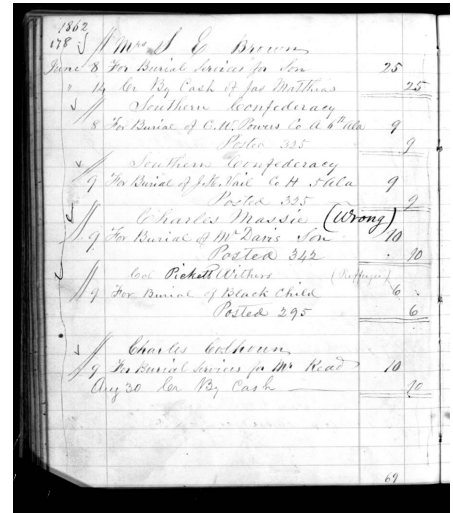 1862
178
Mrs S E Brown
June 8 For Burial Services for Son 25
" 14 Cr By Cash of Jas Matthias 25
Southern Confederacy
8 For Burial of C. W. Powers Co A 6th Ala 9
Posted 335 9
Southern Confederacy
9 For Burial of J. K. Vail Co H 5 Ala 9
Posted 335 9
Charles Massie (Wrong)
9 For Burial of Mr Davis Son 10
Posted 342 10
Col Pickett Withers
9 For Burial of Black Child 6
Posted 295 6
Charles Calhoun
9 For Burial Services for Mr Read 10
Aug 30 Cr By Cash 10
69